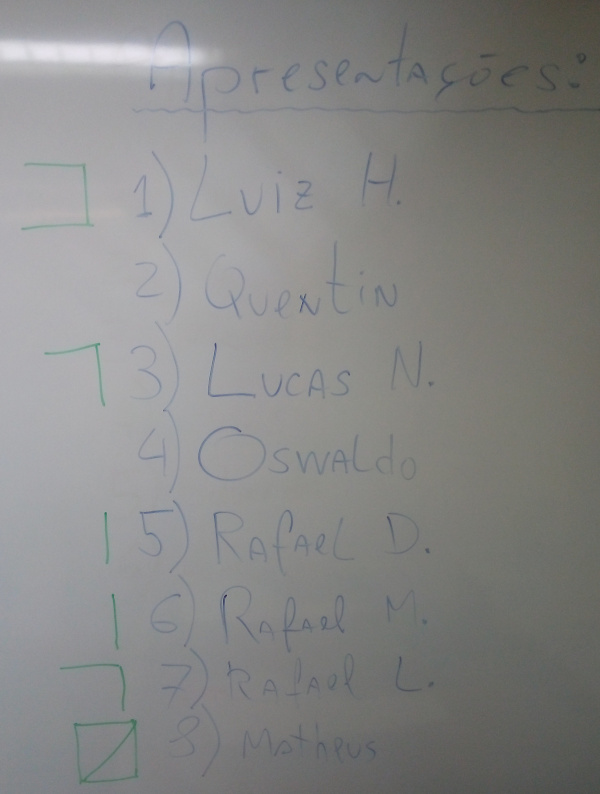 Apresentações:
1) Luiz H.
2) Quentin
3) Lucas N.
4) Oswaldo
5) Rafael D.
6) Rafael M.
7) Rafael L.
8) Matheus